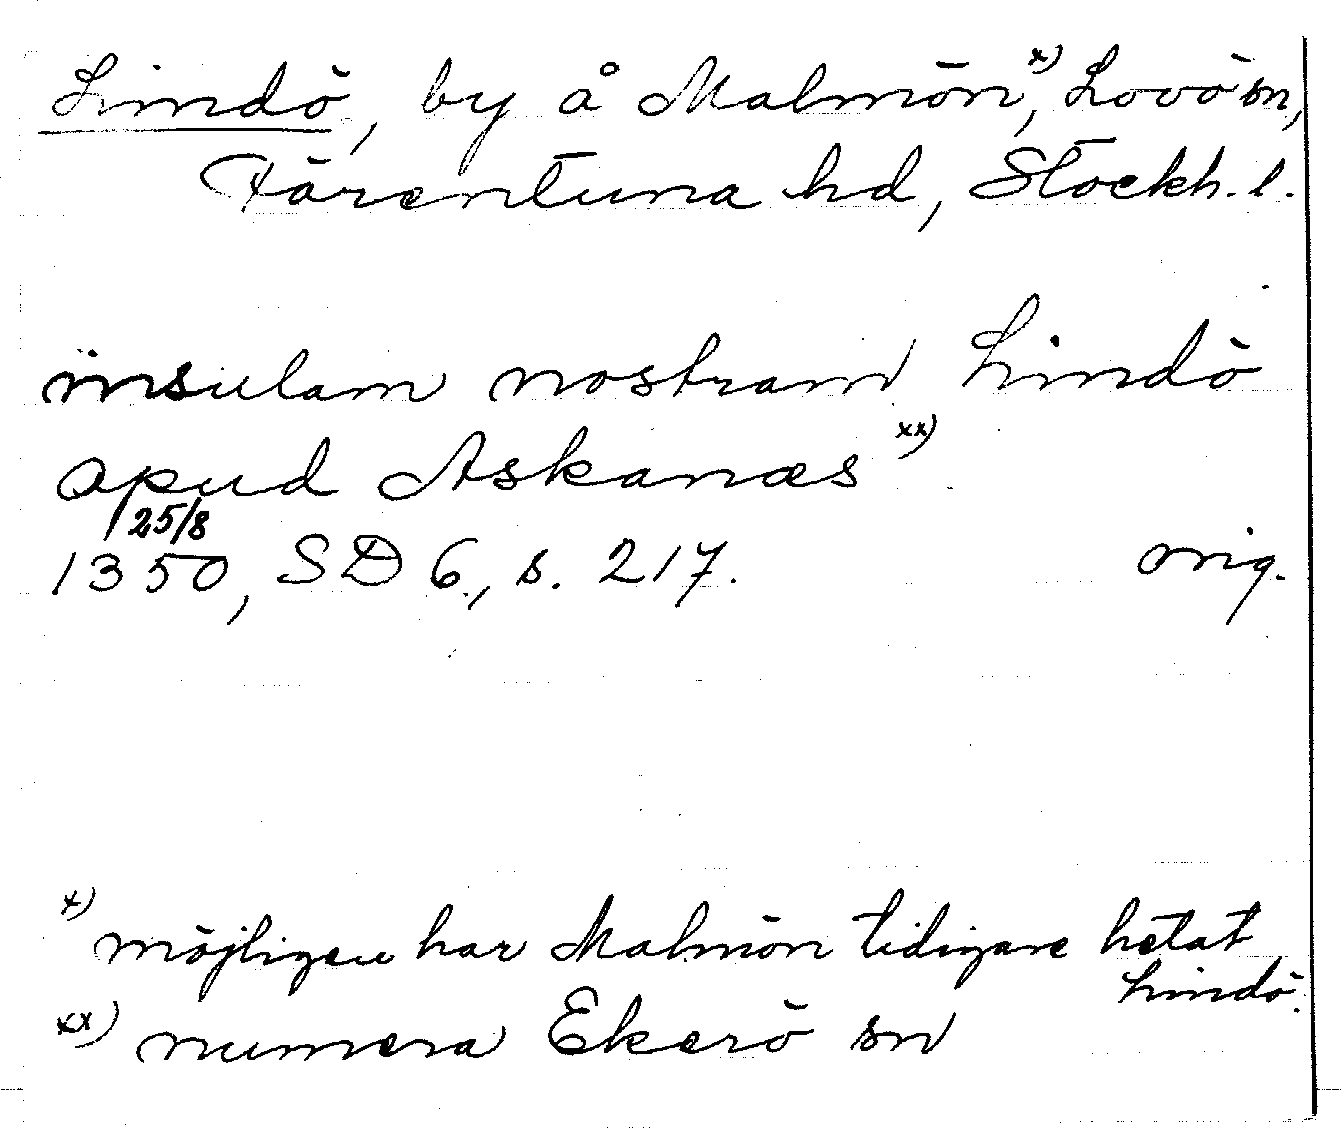 Lindö, by å Malmön,x) Lovö sn,
Färentuna hd, Stockh. l.
insulam nostram Lindö
apud Askanæs xx)
25/8
1350, SD 6, s. 217. orig.
x) möjligen har Malmön tidigare hetat
Lindö.
xx) numera Ekerö sn